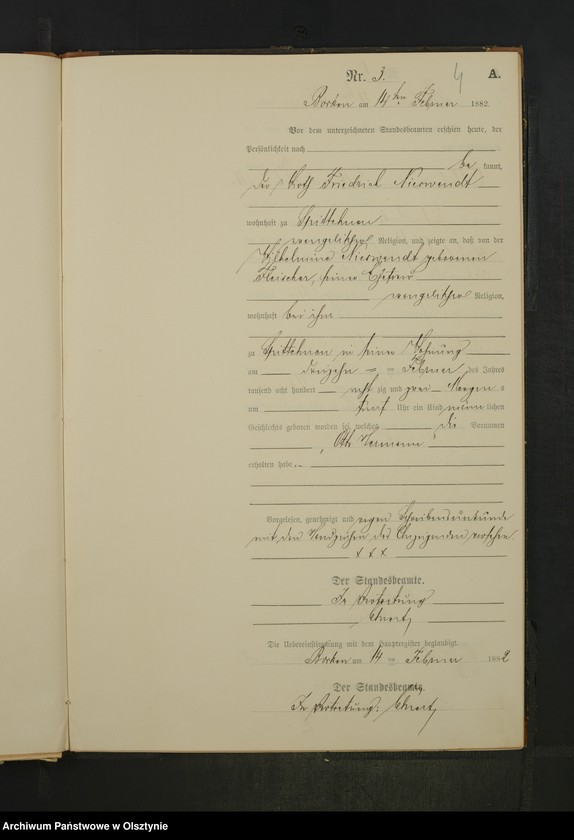 Nr. 3. 4 A.
Borken am 14ten Februar 1882.
Vor dem unterzeichneten Standesbeamten erschien heute, der
Persönlichkeit nach
be kannt,
der Friedrich Nierwendt
wohnhaft zu Spittehnen
evangelischer Religion, und zeigte an, daß von der
Wilhelmine Nierwendt geborenen
Fleischer, seiner Ehefrau
evangelischer Religion,
wohnhaft bei ihm
zu Spittehnen in seiner Wohnung
am dreizehn ten Februar des Jahres
tausend acht hundert acht zig und zwei Morgens
um fünf Uhr ein Kind männlichen
Geschlechts geboren worden sei, welches die Vornamen
"Otto Hermann"
erhalten habe.
Vorgelesen, genehmigt und wegen Schreibensunkunde
mit den Handzeichen des Anzeigenden versehen
+ + +
Der Standesbeamte.
In Vertretung
Die Uebereinstimmung mit dem Hauptregister beglaubigt.
Borken am 14 ten Februar 1882
Der Standesbeamte.
In Vertretung:
Archiwum Państwowe w Olsztynie